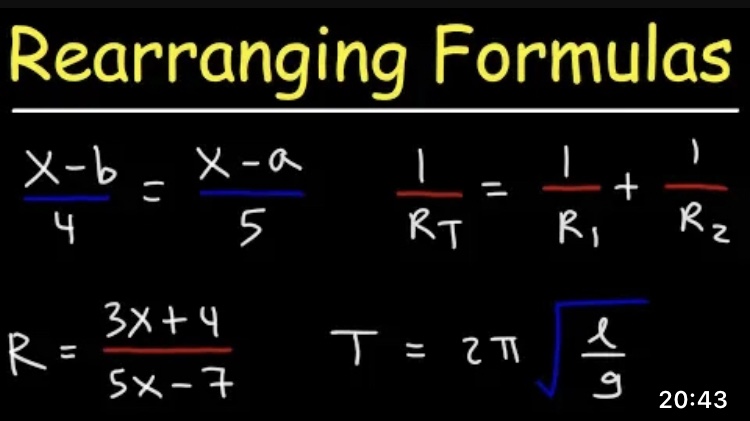 Rearranging Formulas
x-b/4 = x-a/5
1/R_T = 1/R_1 + 1/R_2
R = 3x+4/5x-7
T = 2π√(l/g)
20:43